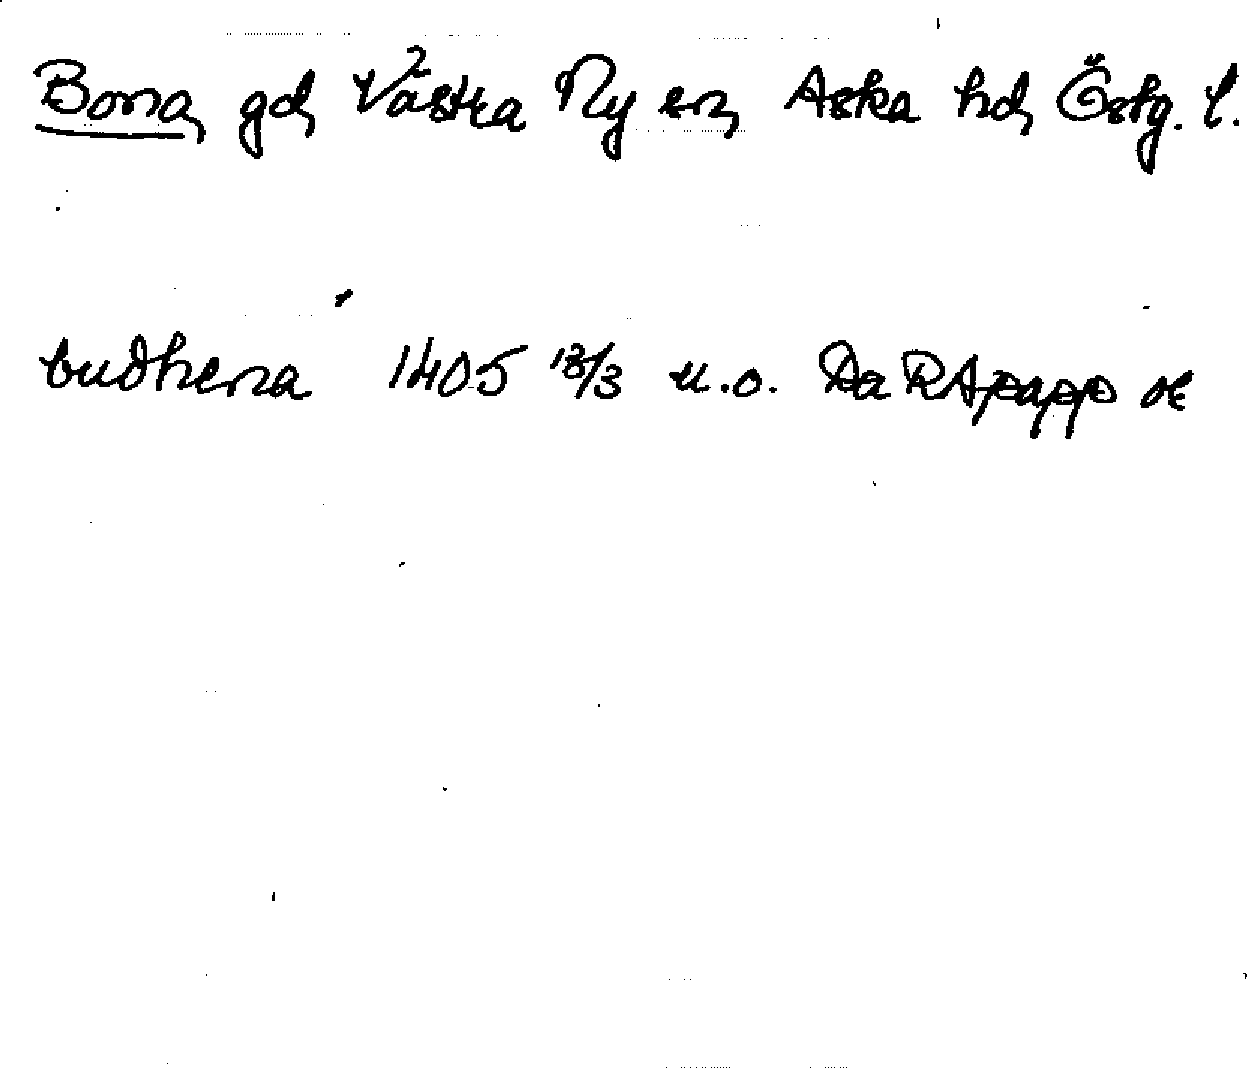 Bona, gd, Västra Ny sn, Aska hd, Östg. l.
budhena 1405 18/3 u.o. Da RApapp or